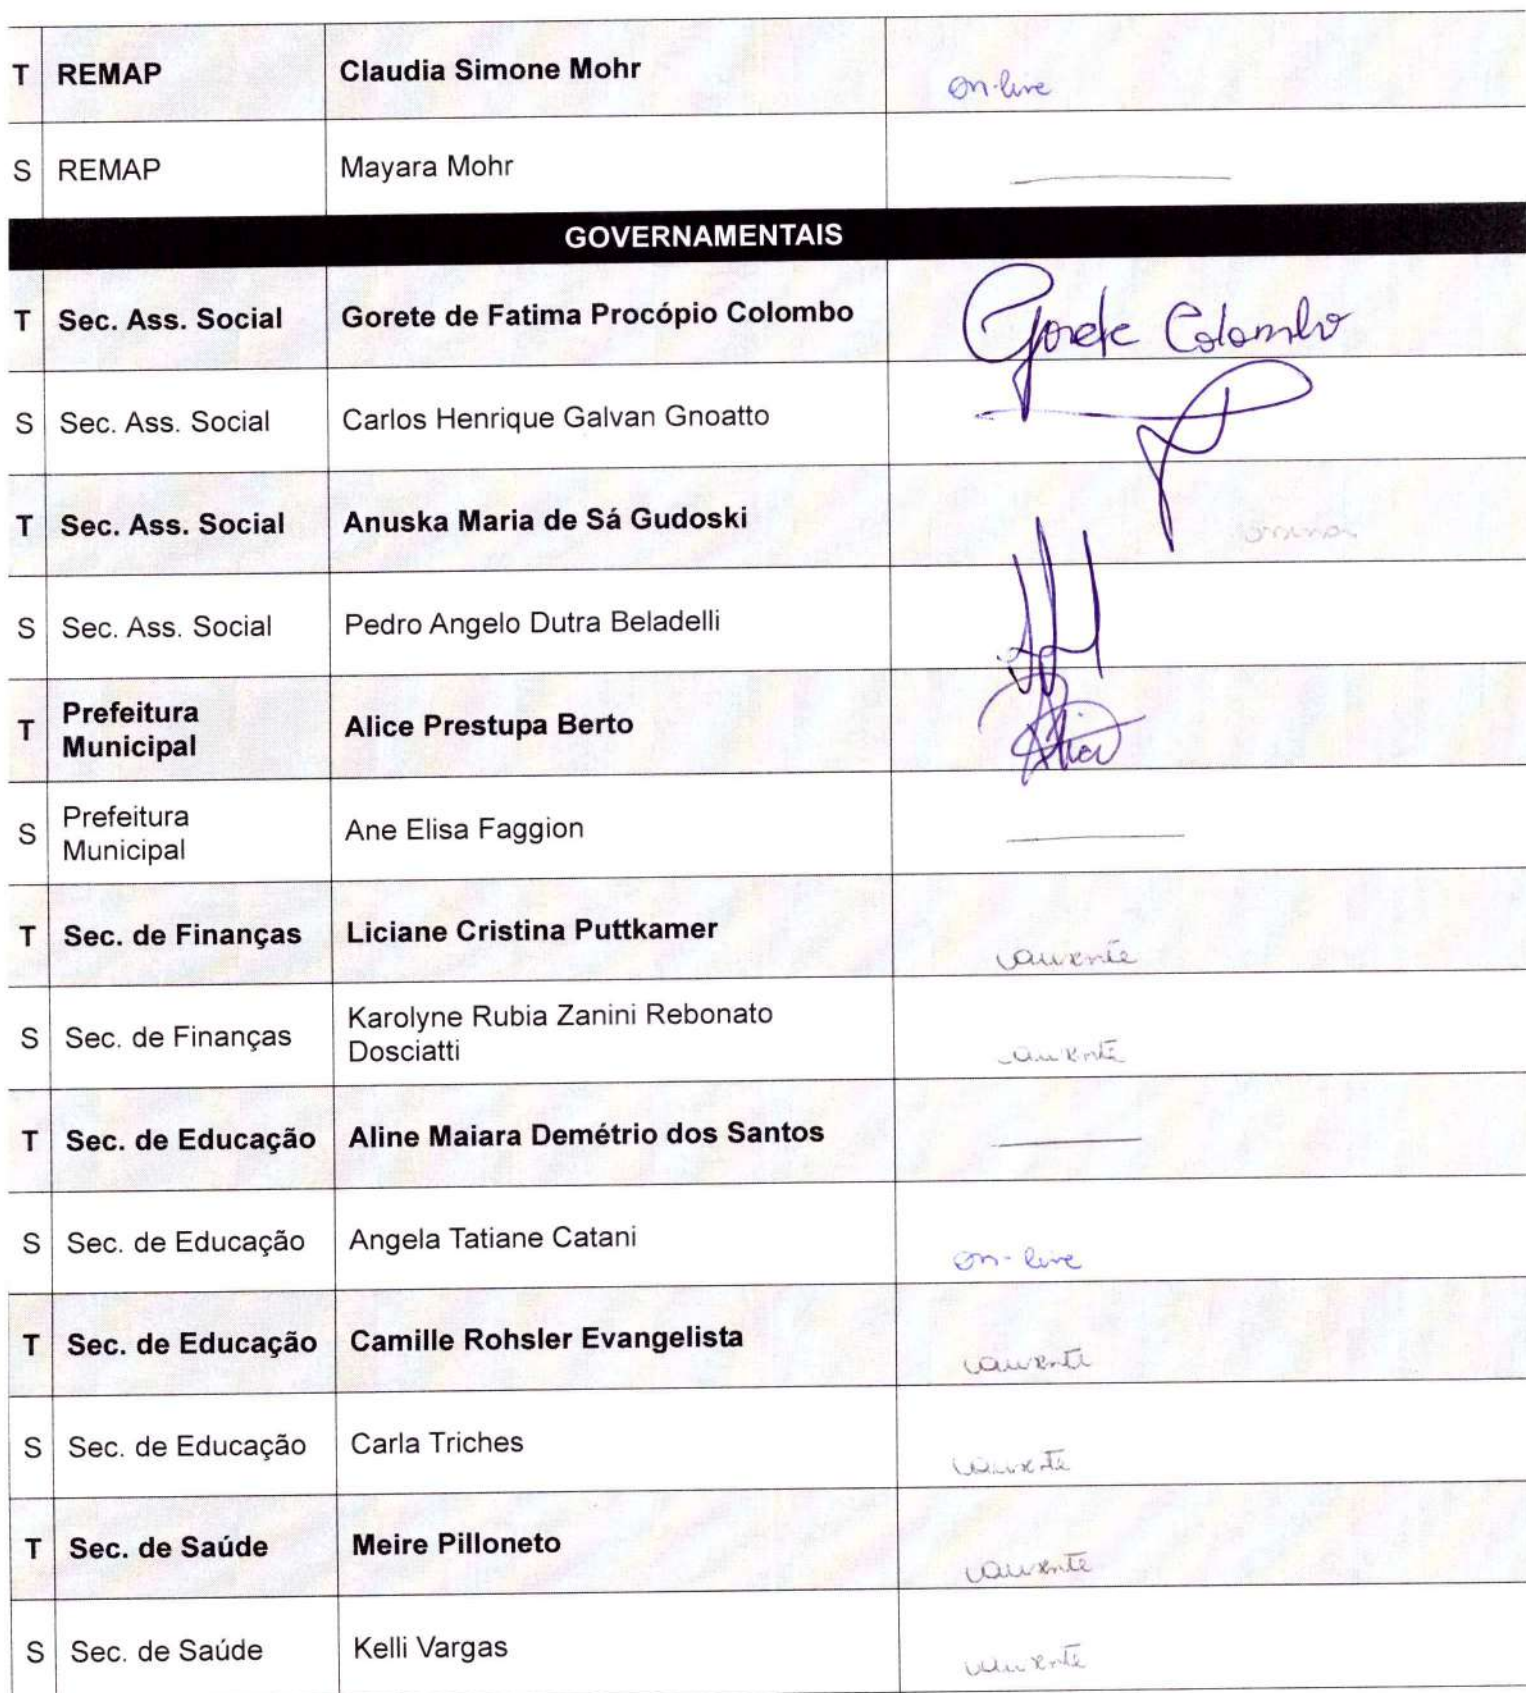 T REMAP Claudia Simone Mohr on-line
S REMAP Mayara Mohr
GOVERNAMENTAIS
T Sec. Ass. Social Gorete de Fatima Procópio Colombo Gorete Colombo
S Sec. Ass. Social Carlos Henrique Galvan Gnoatto
T Sec. Ass. Social Anuska Maria de Sá Gudoski
S Sec. Ass. Social Pedro Angelo Dutra Beladelli
T Prefeitura
Municipal Alice Prestupa Berto Alice
S Prefeitura
Municipal Ane Elisa Faggion
T Sec. de Finanças Liciane Cristina Puttkamer ausente
S Sec. de Finanças Karolyne Rubia Zanini Rebonato
Dosciatti ausente
T Sec. de Educação Aline Maiara Demétrio dos Santos
S Sec. de Educação Angela Tatiane Catani on-line
T Sec. de Educação Camille Rohsler Evangelista ausente
S Sec. de Educação Carla Triches ausente
T Sec. de Saúde Meire Pilloneto ausente
S Sec. de Saúde Kelli Vargas ausente